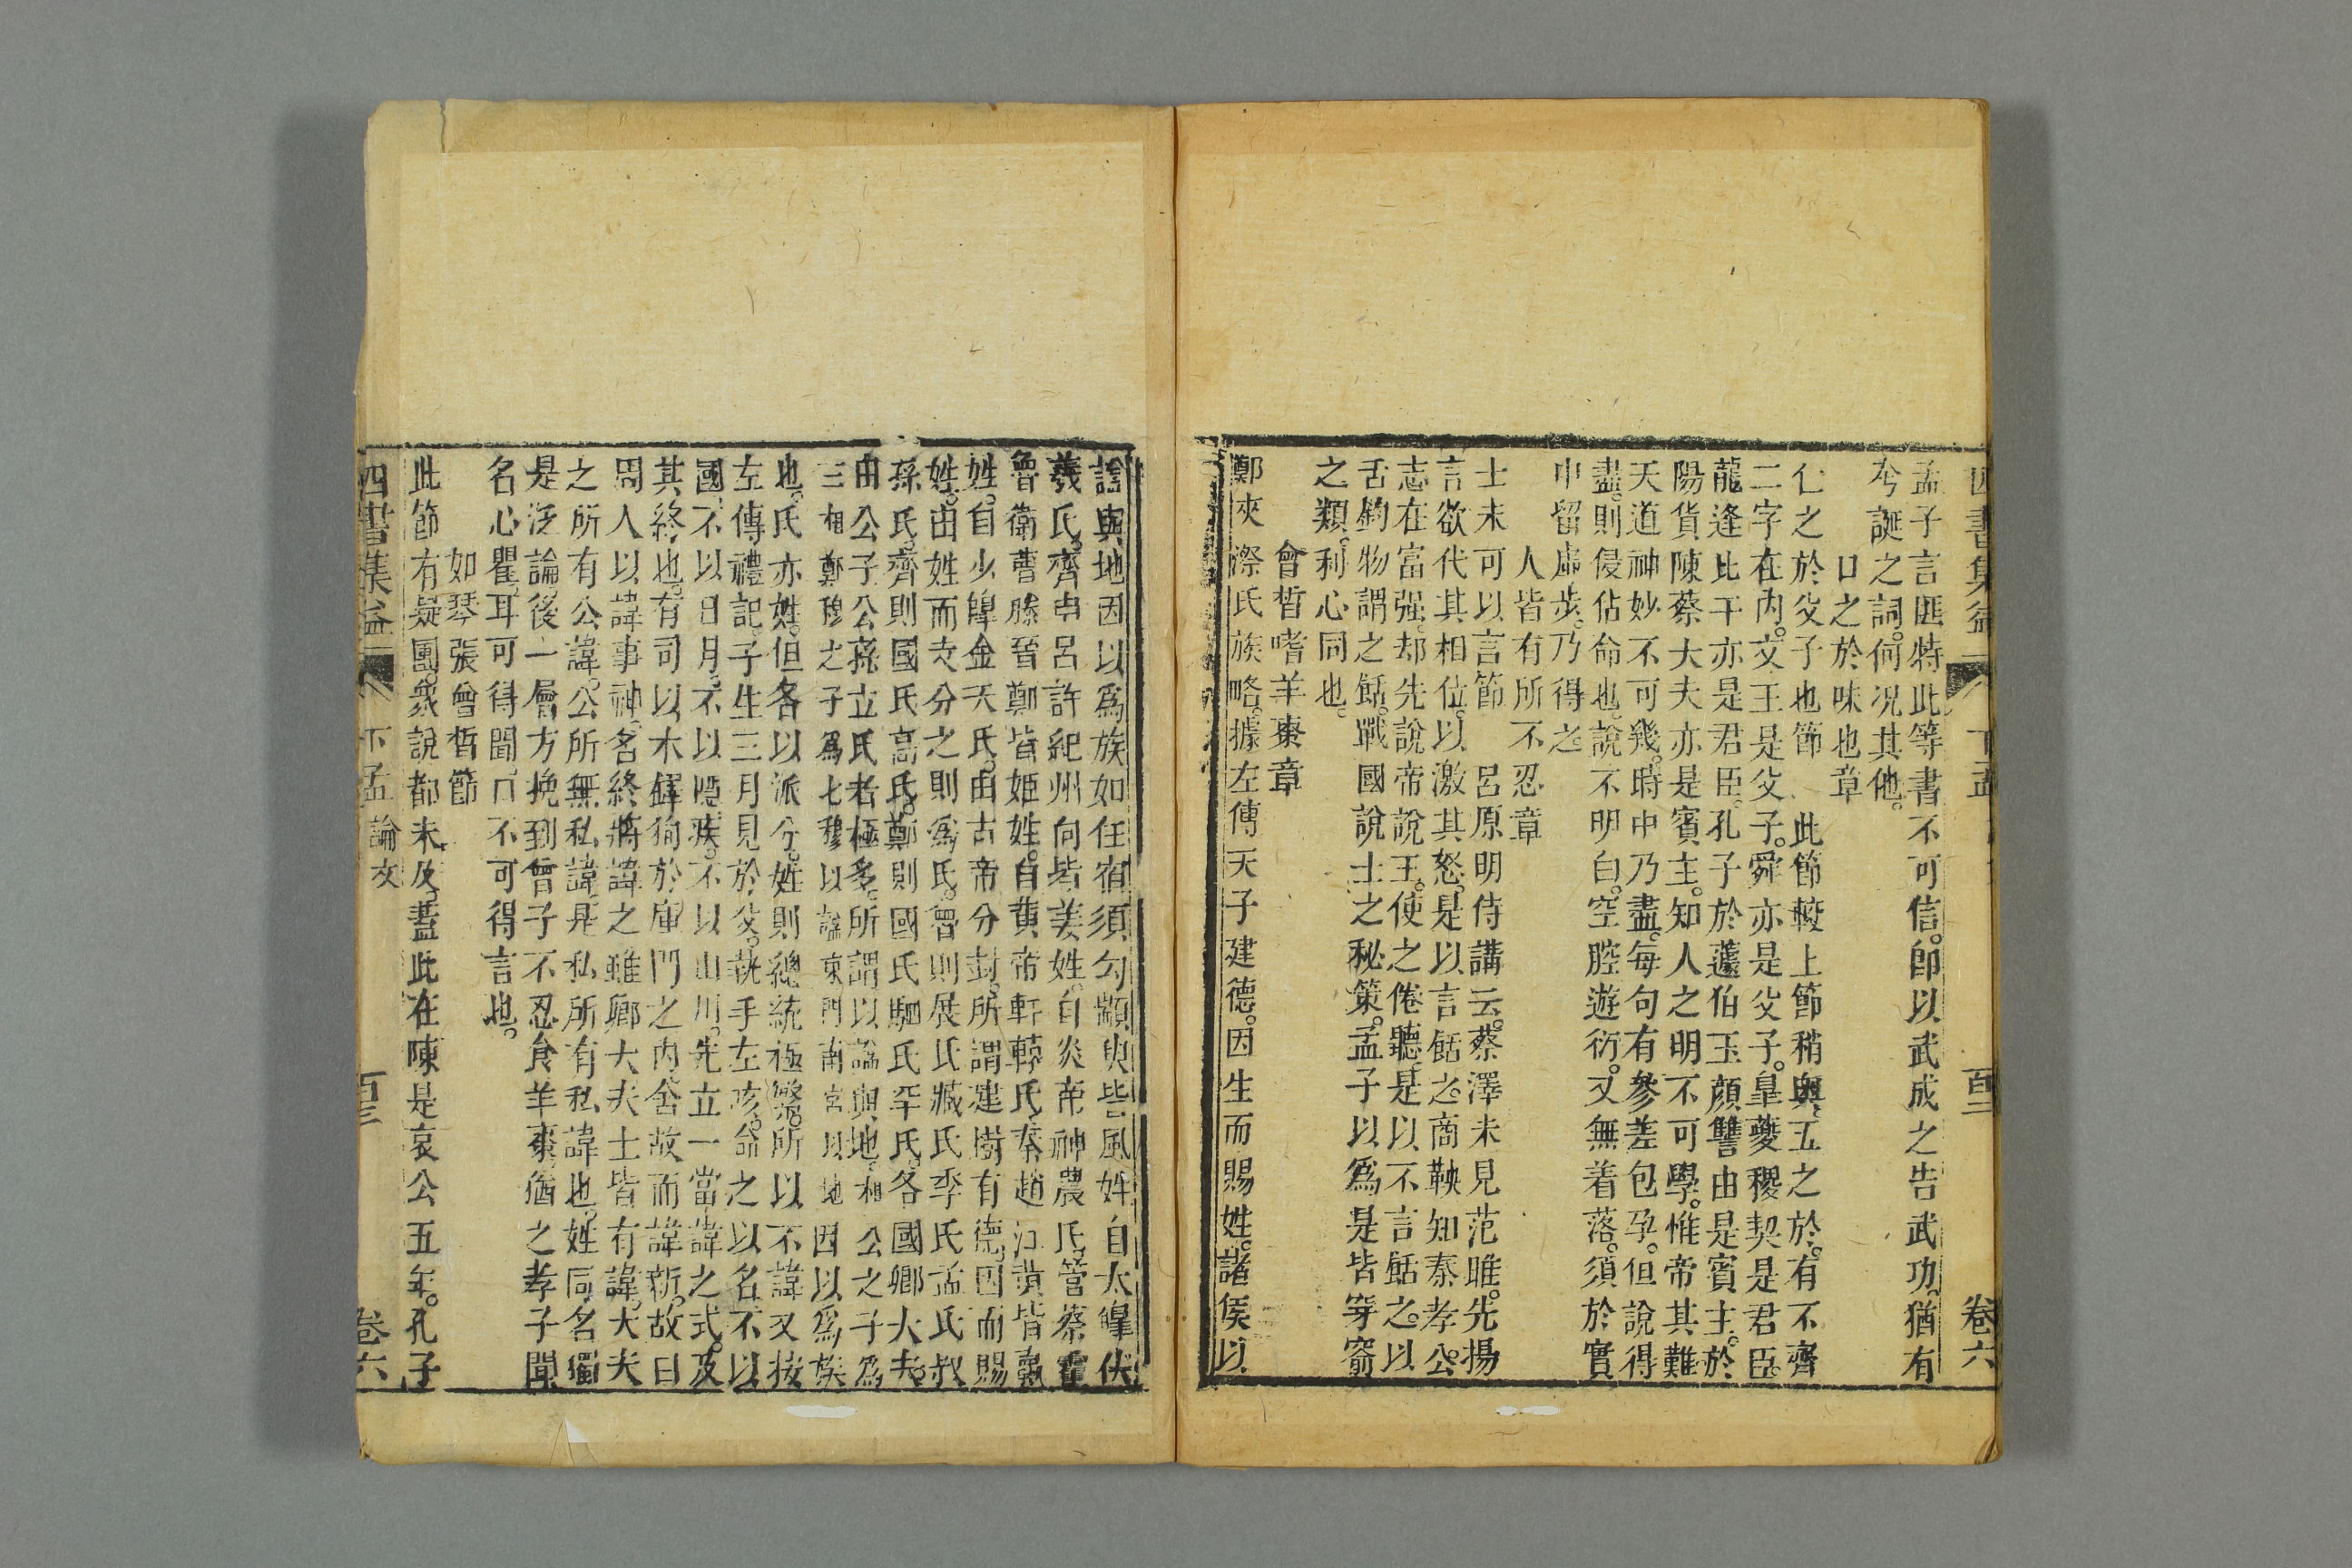 四書集益
下孟
卷六
孟子言匪特此等書不可信。卽以武成之告武功。猶有
夸誕之詞。何况其他。
口之於味也章
仁之於父子也節 此節較上節稍與五之於。有不齊
二字在內。文王是父子。舜亦是父子。皐夔稷契是君臣。
龍逢比干亦是君臣。孔子於蘧伯玉顔讐由是賓主。於
陽貨陳蔡大夫亦是賓主。知人之明不可學。惟帝其難
天道神妙不可幾。時中乃盡。每句有參差包孕。但說得
盡。則侵佔命也。說不明白。空腔遊衍。又無着落。須於實
中留虛步。乃得之
人皆有所不忍章
士未可以言節 呂原明侍講云。蔡澤未見范雎。先揚
言欲代其相位。以激其怒。是以言餂之。商鞅知秦孝公
志在富强。却先說帝說王。使之倦聽。是以不言餂之。以
舌鈎物謂之餂。戰國說士之秘策。孟子以爲是皆穿窬
之類。利心同也。
曾晳嗜羊棗章
鄭夾漈氏族略。據左傳天子建德。因生而賜姓。諸侯以
諡與地因以爲族如任宿須勾顓臾皆風姓自太皥伏
羲氏。齊申呂許紀州向皆姜姓。自炎帝神農氏。管蔡霍
魯衞曹滕晉鄭皆姬姓。自黄帝軒轅氏。秦趙江黄皆嬴
姓。自少皥金天氏。由古帝分封。所謂建樹有德。因而賜
姓。由姓而支分之則爲氏。魯則展氏臧氏季氏孟氏叔
孫氏。齊則國氏高氏。鄭則國氏駟氏罕氏。各國卿大夫
由公子公孫立氏者極多。所謂以諡與地。相公之子爲
三相鄭穆之子爲七穆以諡東門南宮以地因以爲族
也。氏亦姓。但各以派分。姓則總統極繁。所以不諱又按
左傳禮記。子生三月見於父。執手左咳。命之以名不以
國。不以日月。不以隱疾。不以山川。先立一當諱之式。及
其終也。有司以木鐸狥於庫門之內。舍故而諱新。故曰
周人以諱事神。名終將諱之雖卿大夫士皆有諱。大夫
之所有公諱。公所無私諱。是私所有私諱也。姓同名獨
是泛論後一層方挽到曾子不忍食羊棗。猶之孝子聞
名心瞿。耳可得聞。口不可得言也。
如琴張曾晳節
此節有疑團。衆說都未及。蓋此在陳是哀公五年。孔子
四書集益
下孟 論文
卷六